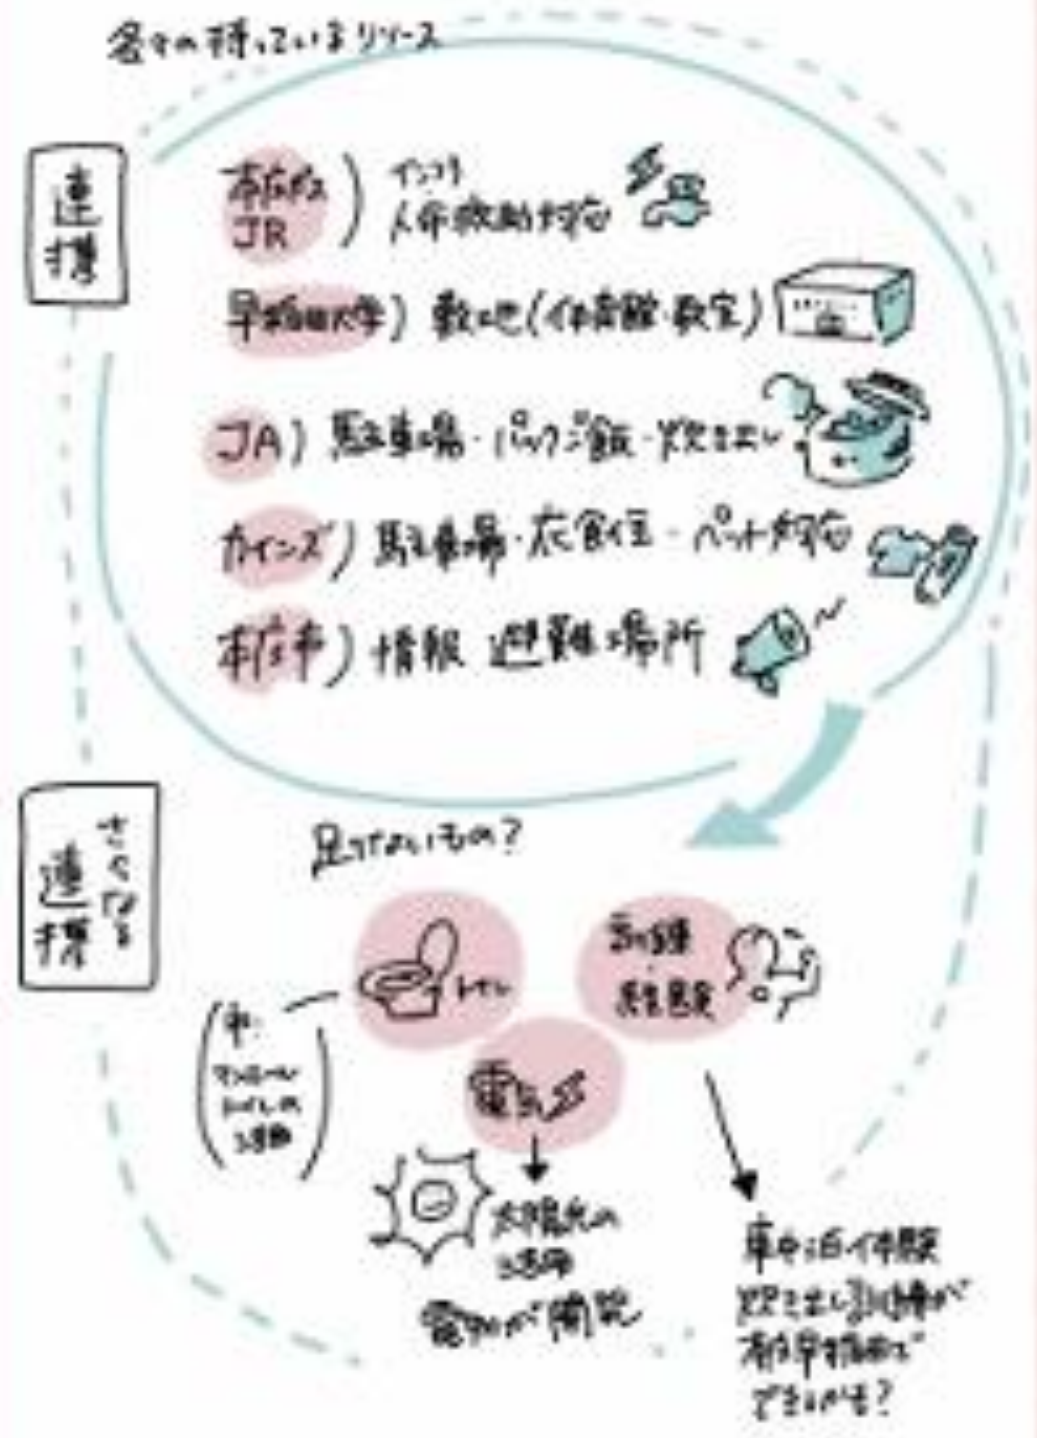 各々の持っているリソース
連携
本庄ガス
JR
インフラ
人命救助対応
早稲田大学) 敷地(体育館・教室)
JA) 駐車場・パックご飯・炊き出し
カインズ) 駐車場・衣食住・ペット対応
本庄市) 情報 避難場所
さらなる
連携
足りないもの?
トイレ
訓練
・
経験
市:
マンホール
トイレの
活用
電気
太陽光の
活用
電力が
車中泊体験
炊き出し訓練が
本庄早稲田で
できるかも?